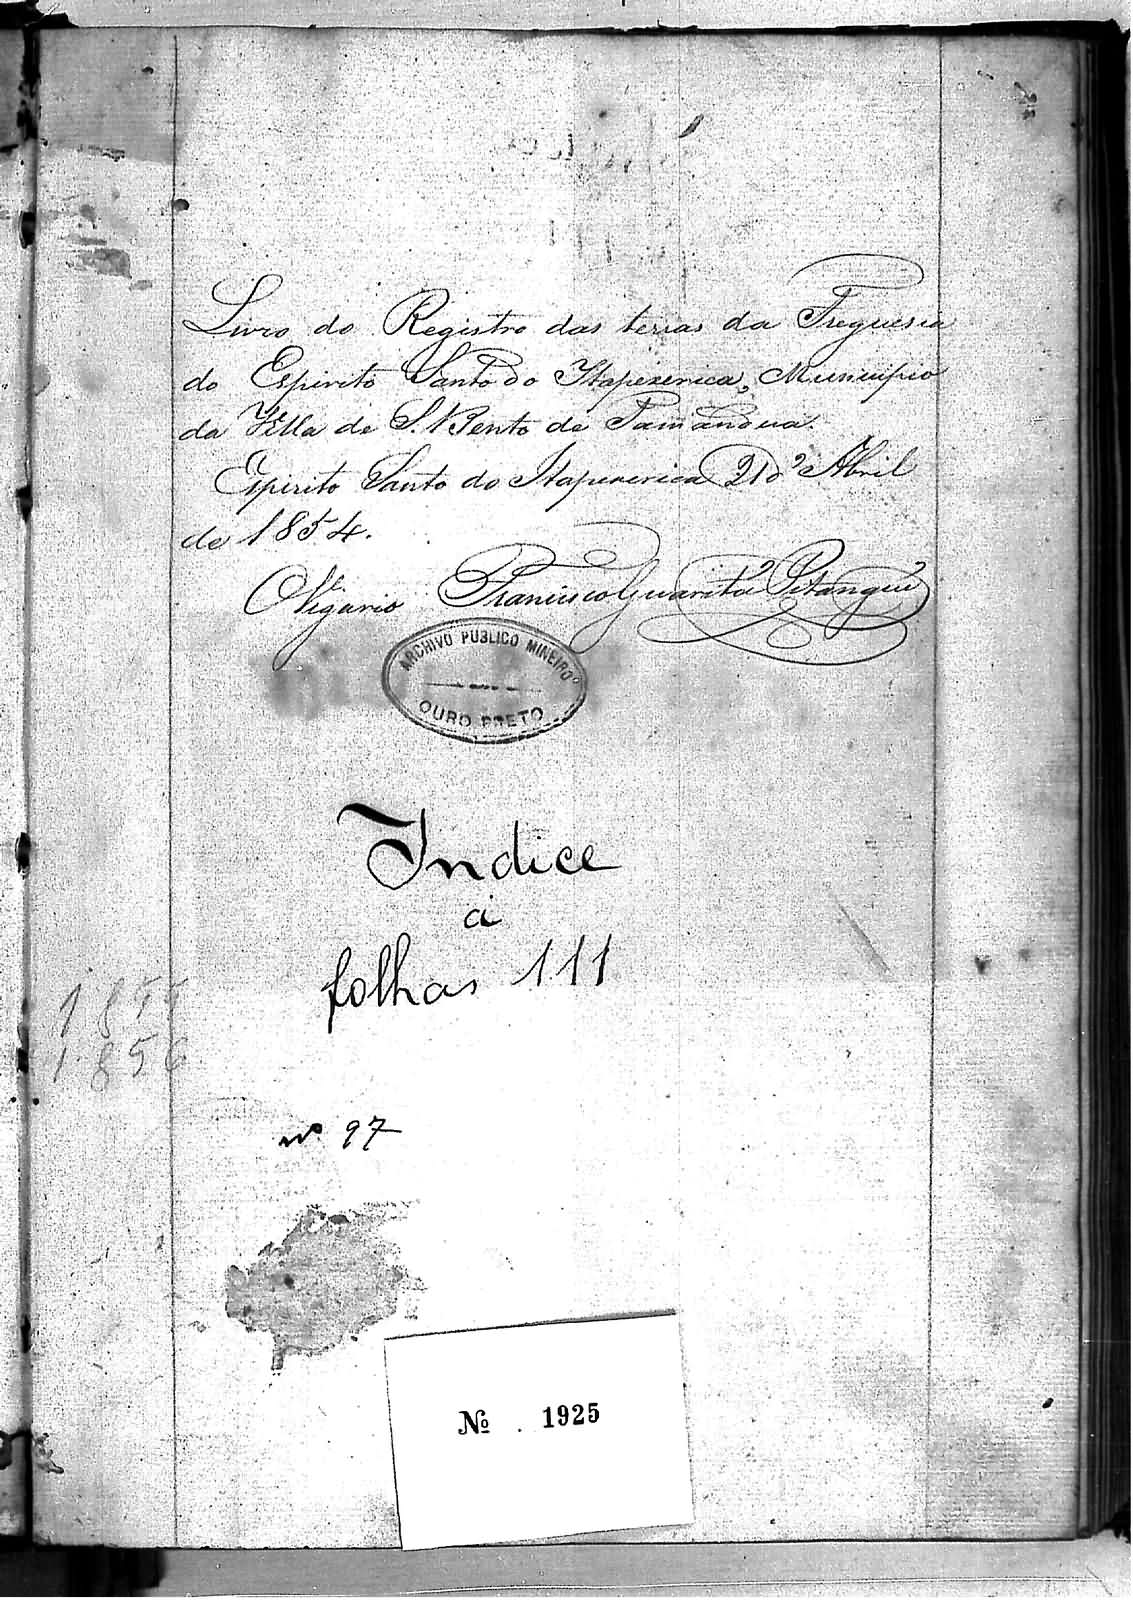 Livro do Registro das terras da Freguesia
do Espirito Santo do Itapexerica, Municipio
da Villa de S. Bento de Tamandua.
Espirito Santo do Itapexerica 21 d' Abril
de 1854.
O Vigario Francisco Guarita Pitangui
ARCHIVO PUBLICO MINEIRO
OURO PRETO
Indice
á
folhas 111
1855
1856
nº 97
Nº 1925